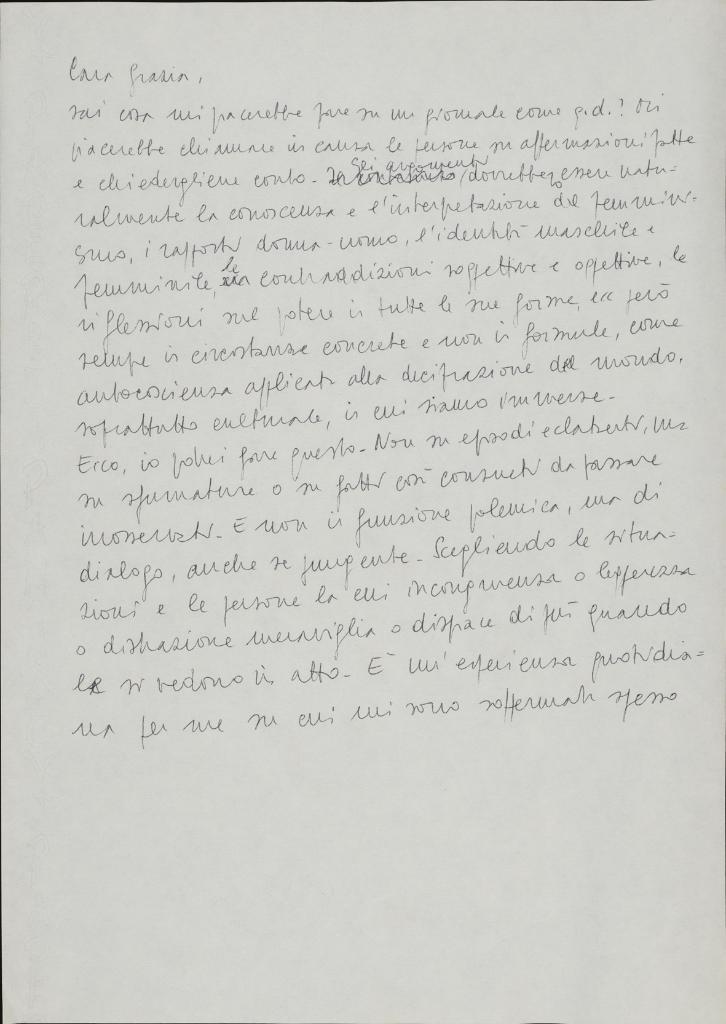 Cara Grazia,
sai cosa mi piacerebbe fare su un giornale come q.d.? Mi
piacerebbe chiamare in causa le persone su affermazioni fatte
e chiedergliene conto - Gli argomenti dovrebbero essere natu=
ralmente la conoscenza e l'interpretazione del femmini-
smo, i rapporti donna-uomo, l'identità maschile e
femminile, le contraddizioni soggettive e oggettive, le
riflessioni sul potere in tutte le sue forme, ecc però
sempre in circostanze concrete e non in formule, come
autocoscienza applicata alla decifrazione del mondo,
soprattutto culturale, in cui siamo immerse -
Ecco, io potrei fare questo - Non su episodi eclatanti, ma
su sfumature o su fatti così consueti da passare
inosservati - E non in funzione polemica, ma di
dialogo, anche se pungente - Scegliendo le situa-
zioni e le persone la cui incongruenza o leggerezza
o distrazione meraviglia o dispiace di più quando
le si vedono in atto - È un'esperienza quotidia=
na per me su cui mi sono soffermata spesso